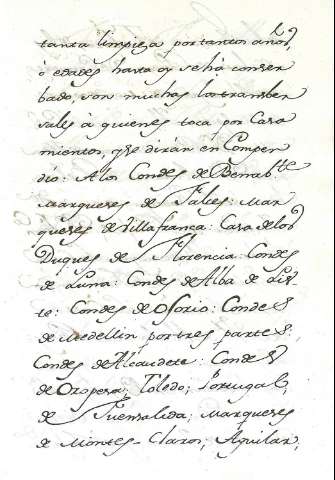 tanta limpieza por tantos años,
ò edades hasta oy se há conser
bado, son muchos los transber
sales à quienes toca por Casa
mientos, q.e se dirán en Compen
dio: A los Condes de Benab.te
Marqueses de Falces: Mar
queses de Villafranca: Casa de los
Duques de Florencia: Condes
de Luna: Condes de Alba de Lis
te: Condes de Osorio: Condes
de Medellin por tres partes:
Condes de Alcaudete: Condes
de Oropesa; Toledo; Portugal;
de Fuensalida; Marqueses
de Montes-Claros; Aguilar;